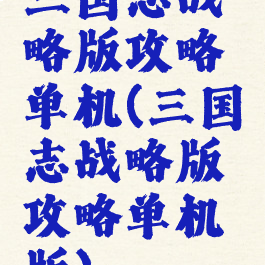 三国志战
略版攻略
单机(三国
志战略版
攻略单机
版)